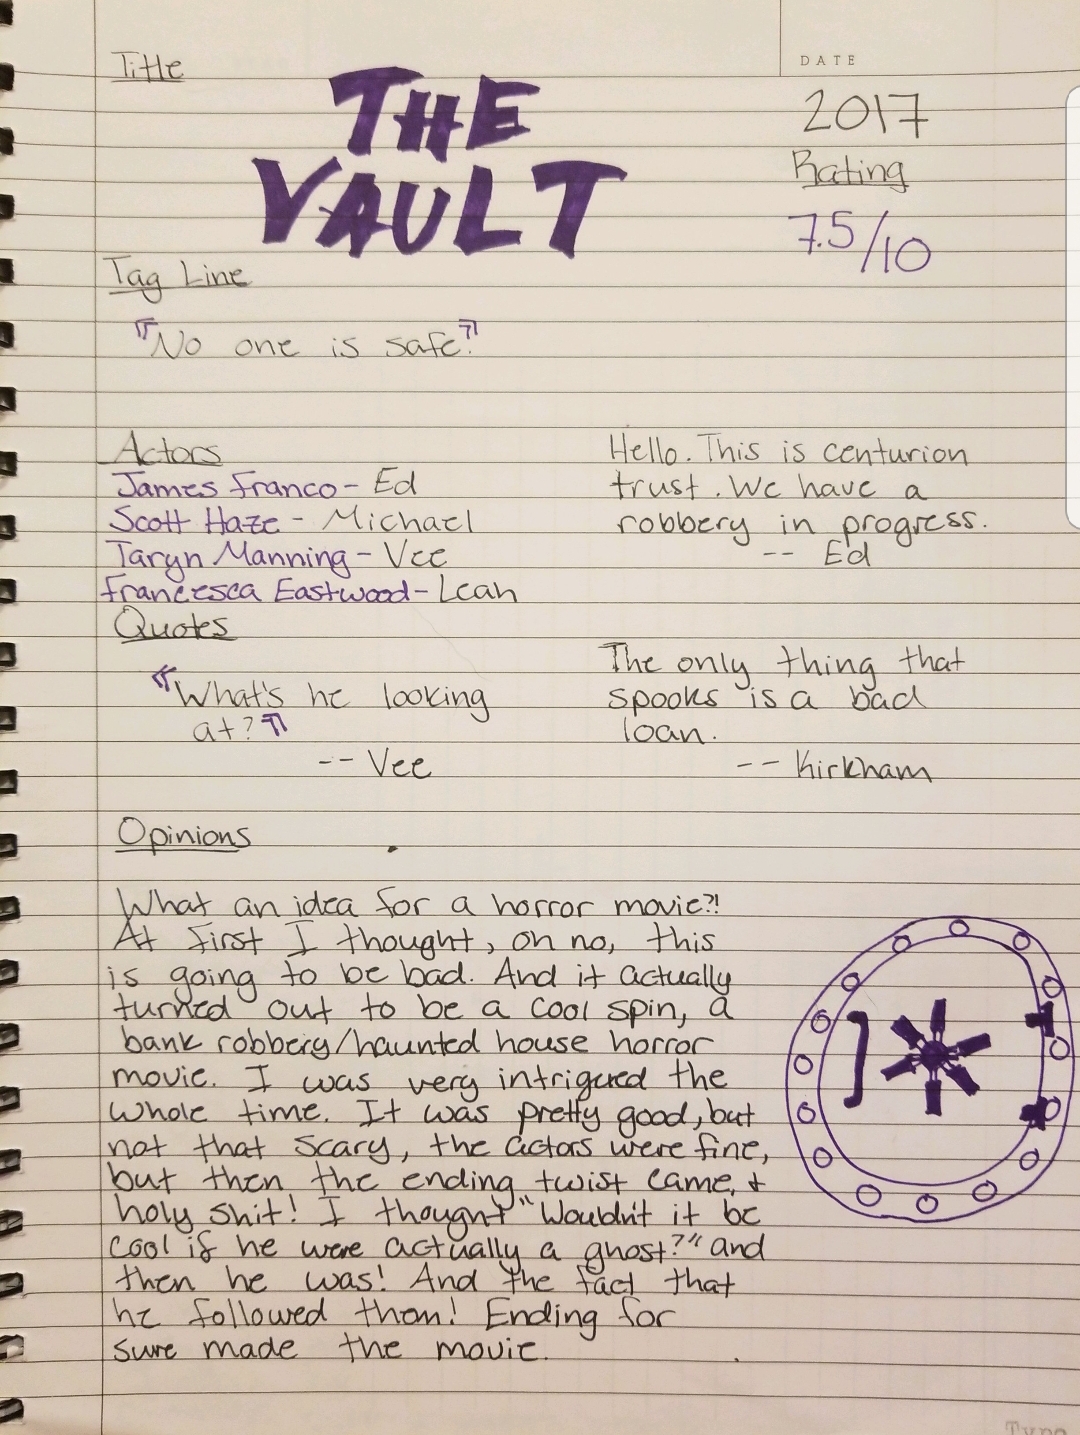 Title
DATE
THE
VAULT
2017
Rating
7.5/10
Tag Line
"No one is safe."
Actors
James Franco - Ed
Scott Haze - Michael
Taryn Manning - Vee
Francesca Eastwood - Leah
Hello. This is centurion
trust. We have a
robbery in progress.
-- Ed
Quotes
"What's he looking
at?"
-- Vee
The only thing that
spooks is a bad
loan.
-- Kirkham
Opinions
What an idea for a horror movie?!
At first I thought, oh no, this
is going to be bad. And it actually
turned out to be a cool spin, a
bank robbery/haunted house horror
movie. I was very intrigued the
whole time. It was pretty good, but
not that scary, the actors were fine,
but then the ending twist came, &
holy shit! I thought "Wouldn't it be
cool if he were actually a ghost?" and
then he was! And the fact that
he followed them! Ending for
sure made the movie.